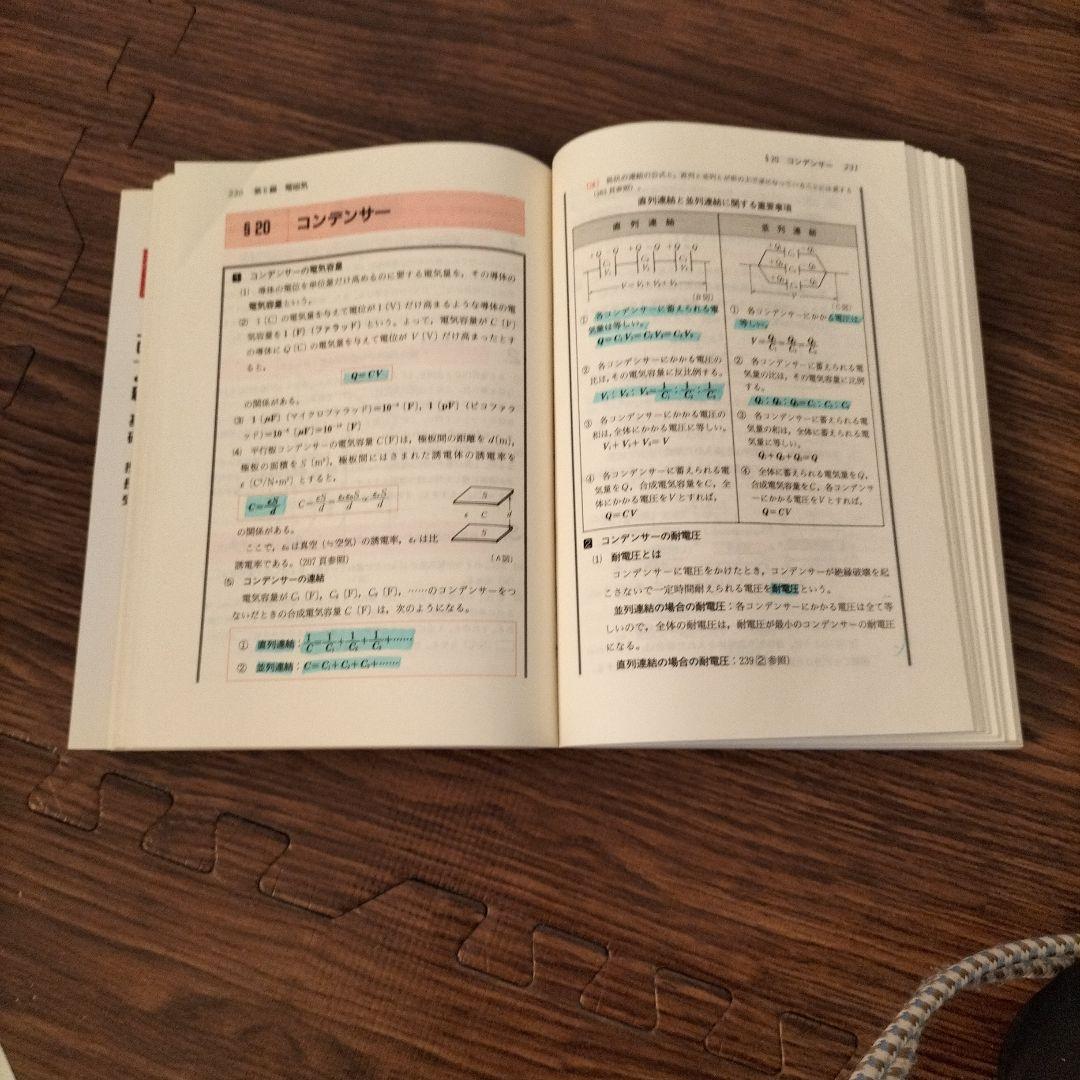 230 第5編 電磁気
§20 コンデンサー
1 コンデンサーの電気容量
(1) 導体の電位を単位量だけ高めるのに要する電気量を，その導体の
電気容量という。
(2) 1〔C〕の電気量を与えて電位が1〔V〕だけ高まるような導体の電
気容量を1〔F〕(ファラッド) という。よって，電気容量が C〔F〕
の導体に Q〔C〕の電気量を与えて電位が V〔V〕だけ高まったとす
ると，
Q=CV
の関係がある。
(3) 1〔μF〕(マイクロファラッド)=10⁻⁶〔F〕, 1〔pF〕(ピコファラ
ッド)=10⁻⁶〔μF〕=10⁻¹²〔F〕
(4) 平行板コンデンサーの電気容量 C〔F〕は，極板間の距離を d〔m〕,
極板の面積を S〔m²〕, 極板間にはさまれた誘電体の誘電率を
ε〔C²/N·m²〕とすると，
C=εS/d
の関係がある。
S
ε C d
S
ここで，ε₀は真空 (≒空気) の誘電率，εᵣは比
誘電率である。(207頁参照)
〔A図〕
(5) コンデンサーの連結
電気容量が C₁〔F〕, C₂〔F〕, C₃〔F〕, ……のコンデンサーをつ
ないだときの合成電気容量 C〔F〕は，次のようになる。
① 直列連結：1/C=1/C₁+1/C₂+1/C₃+……
② 並列連結：C=C₁+C₂+C₃+……
§20 コンデンサー 231
直列連結と並列連結に関する重要事項
直列連結
V=V₁+V₂+V₃
〔B図〕
① 各コンデンサーに蓄えられる電
気量は等しい。
Q=C₁V₁=C₂V₂=C₃V₃
② 各コンデンサーにかかる電圧の
比は，その電気容量に反比例する。
V₁：V₂：V₃=1/C₁：1/C₂：1/C₃
③ 各コンデンサーにかかる電圧の
和は，全体にかかる電圧に等しい。
V₁+V₂+V₃=V
④ 各コンデンサーに蓄えられる電
気量をQ，合成電気容量をC，全
体にかかる電圧をVとすれば，
Q=CV
並列連結
〔C図〕
① 各コンデンサーにかかる電圧は
等しい。
V=Q₁/C₁=Q₂/C₂=Q₃/C₃
② 各コンデンサーに蓄えられる電
気量の比は，その電気容量に比例
する。
Q₁：Q₂：Q₃=C₁：C₂：C₃
③ 各コンデンサーに蓄えられる電
気量の和は，全体に蓄えられる電
気量に等しい。
Q₁+Q₂+Q₃=Q
④ 全体に蓄えられる電気量をQ，
合成電気容量をC，各コンデンサ
ーにかかる電圧をVとすれば，
Q=CV
2 コンデンサーの耐電圧
(1) 耐電圧とは
コンデンサーに電圧をかけたとき，コンデンサーが絶縁破壊を起
こさないで一定時間耐えられる電圧を耐電圧という。
並列連結の場合の耐電圧：各コンデンサーにかかる電圧は全て等
しいので，全体の耐電圧は，耐電圧が最小のコンデンサーの耐電圧
になる。
直列連結の場合の耐電圧：239②参照)